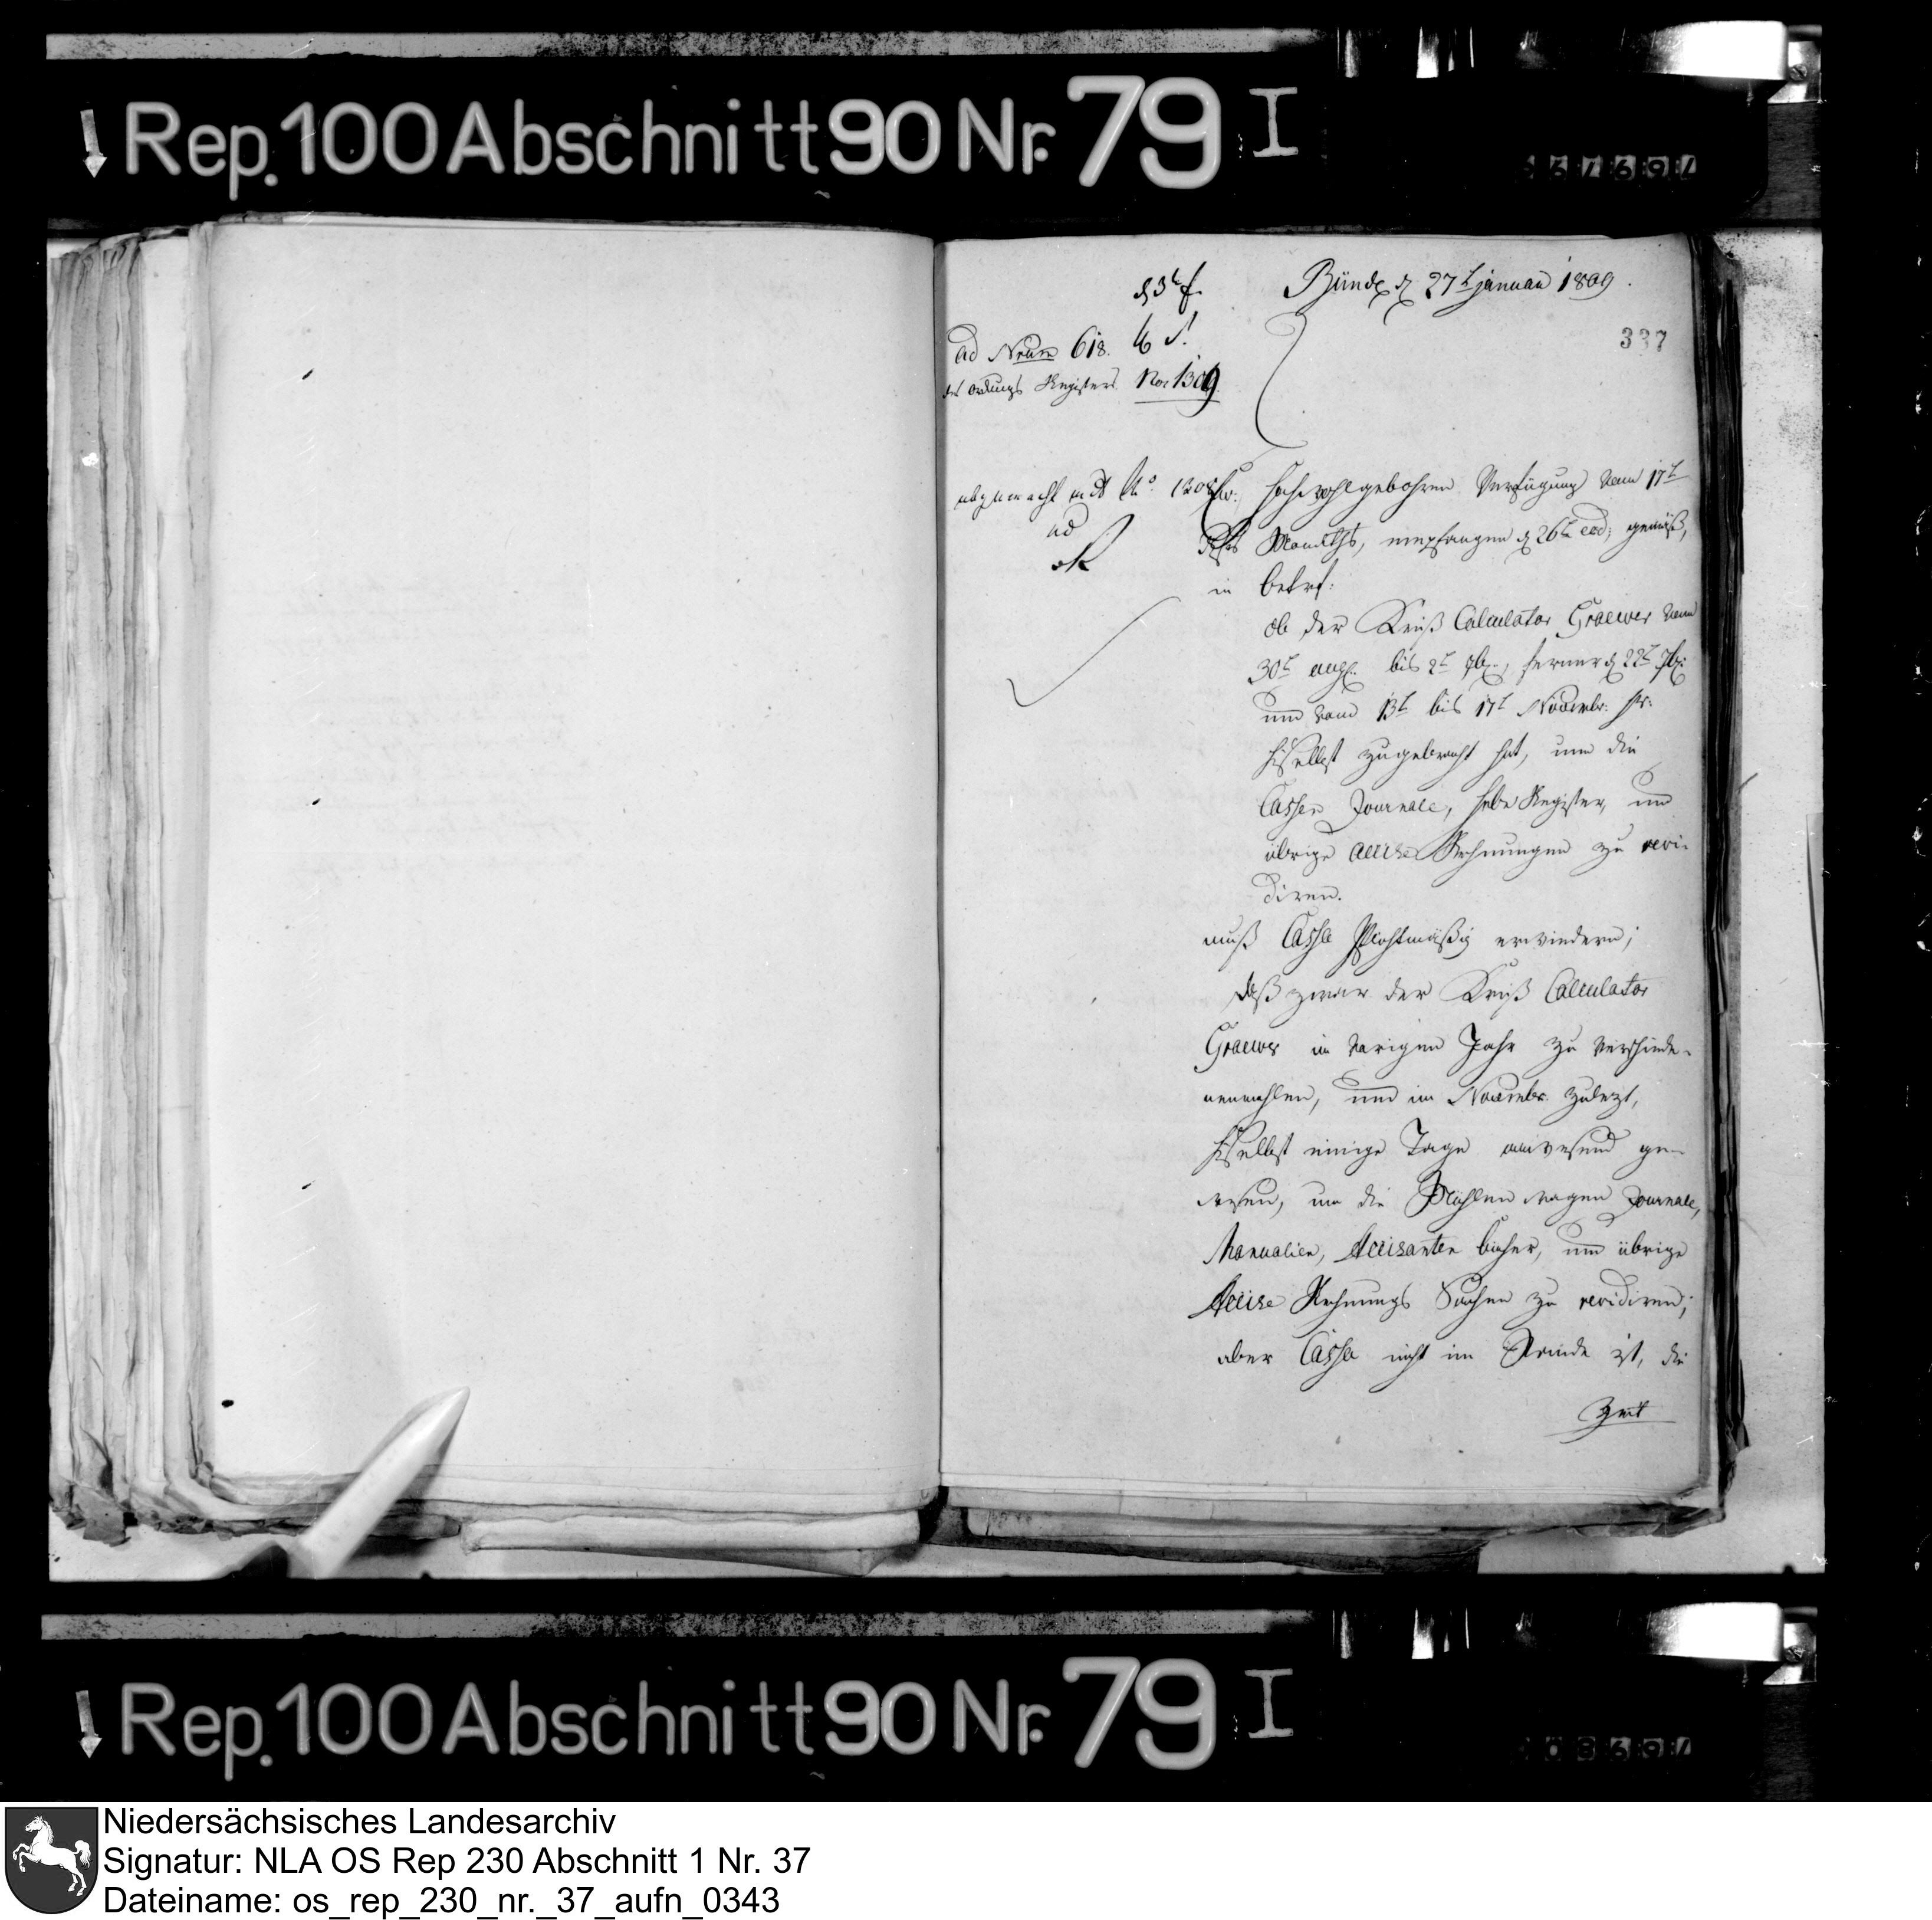 Rep. 100 Abschnitt 90 Nr. 79 I
Bünde d 27t januar 1809.
337
ad Num 618.
des Ordnungs Registers Nor 1309
abgemacht mit No. 1308
ad
Ew: Hochwohlgebohren Verfügung vom 17t
dieses Monaths, empfangen d 26t eod: gemäß,
in betref:
ob der Kreiß Calculator Graewer vom
30t aug. bis 2t 7br., ferner d 22t 7br:
und vom 13t bis 17t Novembr:
hieselbst zugebracht hat, um die
Cassen Journale, hebe Register, und
übrige accise Rechnungen zu revi-
diren.
muß Cassa Pflichtmäßig erwiedern;
daß zwar der Kreiß Calculator
Graewer im vorigen Jahr zu verschiede-
nenmahlen, und im Novembr. zulezt,
hieselbst einige Tage anwesend ge-
wesen, um die Mühlen wagen Journale,
Manualien, Accisanten bücher, und übrige
Accise Rechnungs Sachen zu revidiren;
aber Cassa nicht im Stande ist, die
Zeit
Rep. 100 Abschnitt 90 Nr. 79 I
Niedersächsisches Landesarchiv
Signatur: NLA OS Rep 230 Abschnitt 1 Nr. 37
Dateiname: os_rep_230_nr._37_aufn_0343